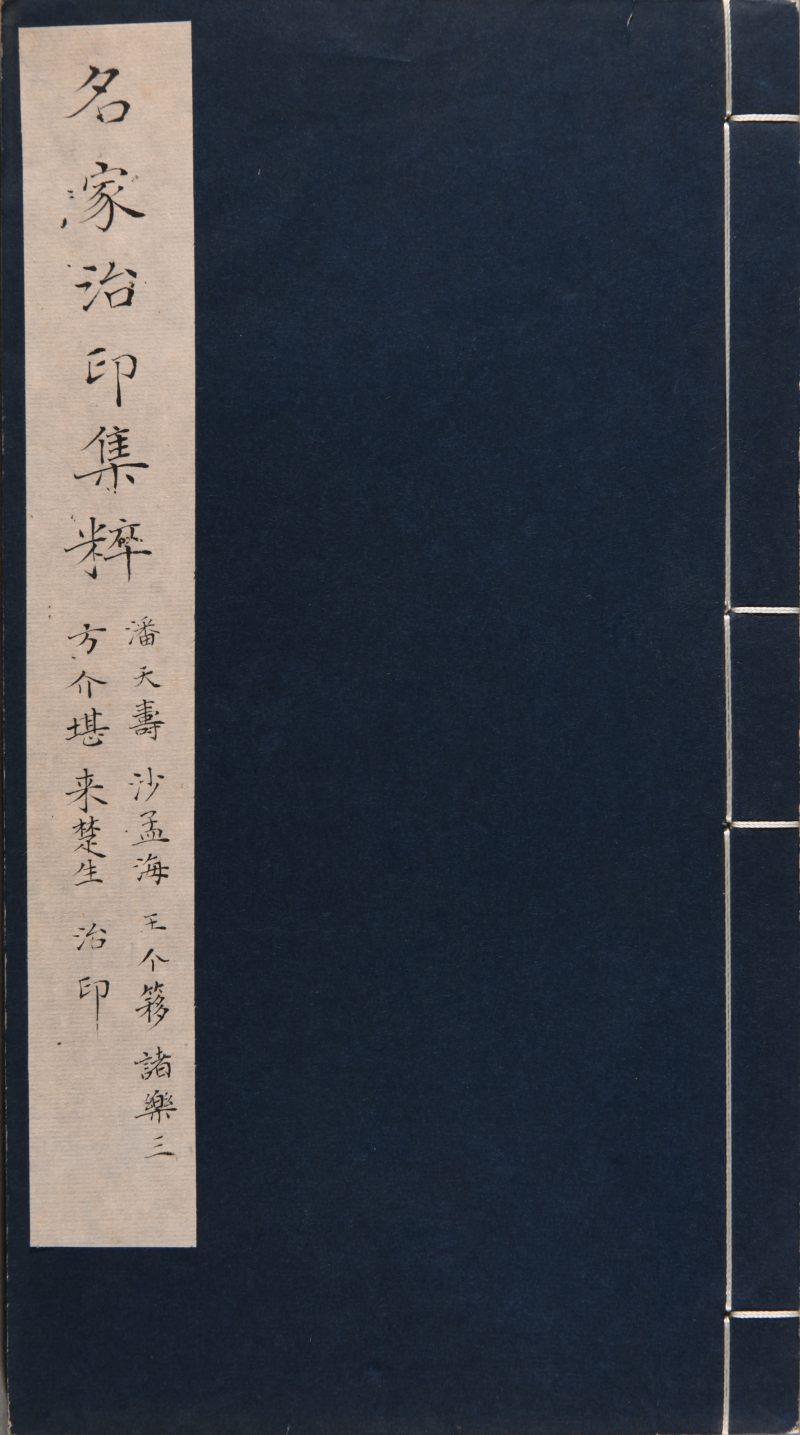 名家治印集粹
潘天壽 沙孟海 王个簃 諸樂三
方介堪 来楚生 治印